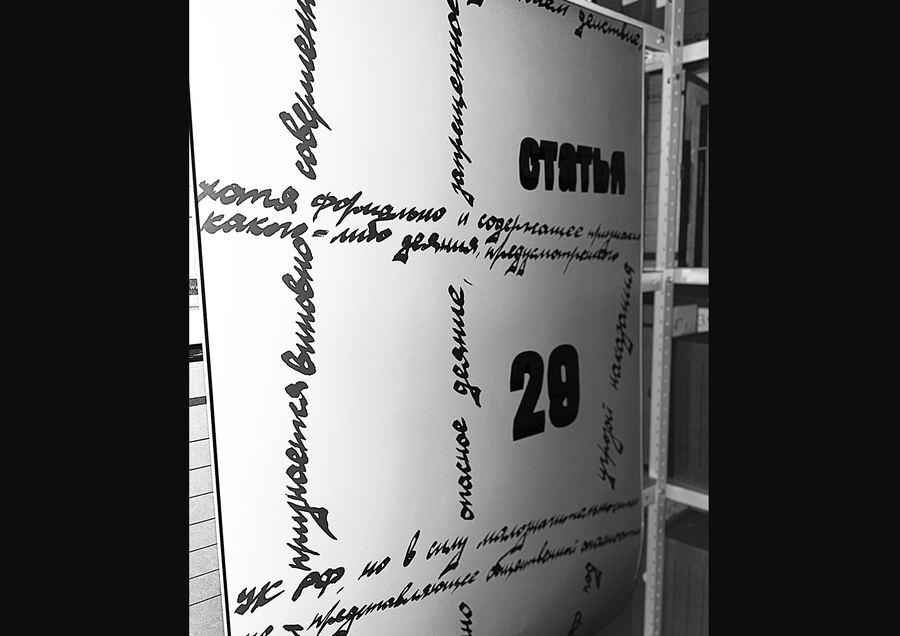 действие,
совершен
запрещенное
статья
хотя формально и содержащее признаки
какого-либо деяния, предусмотренного
признается виновно
опасное деяние,
29
угрозой наказания
УК РФ, но в силу малозначительности
не представляющее общественной опасности